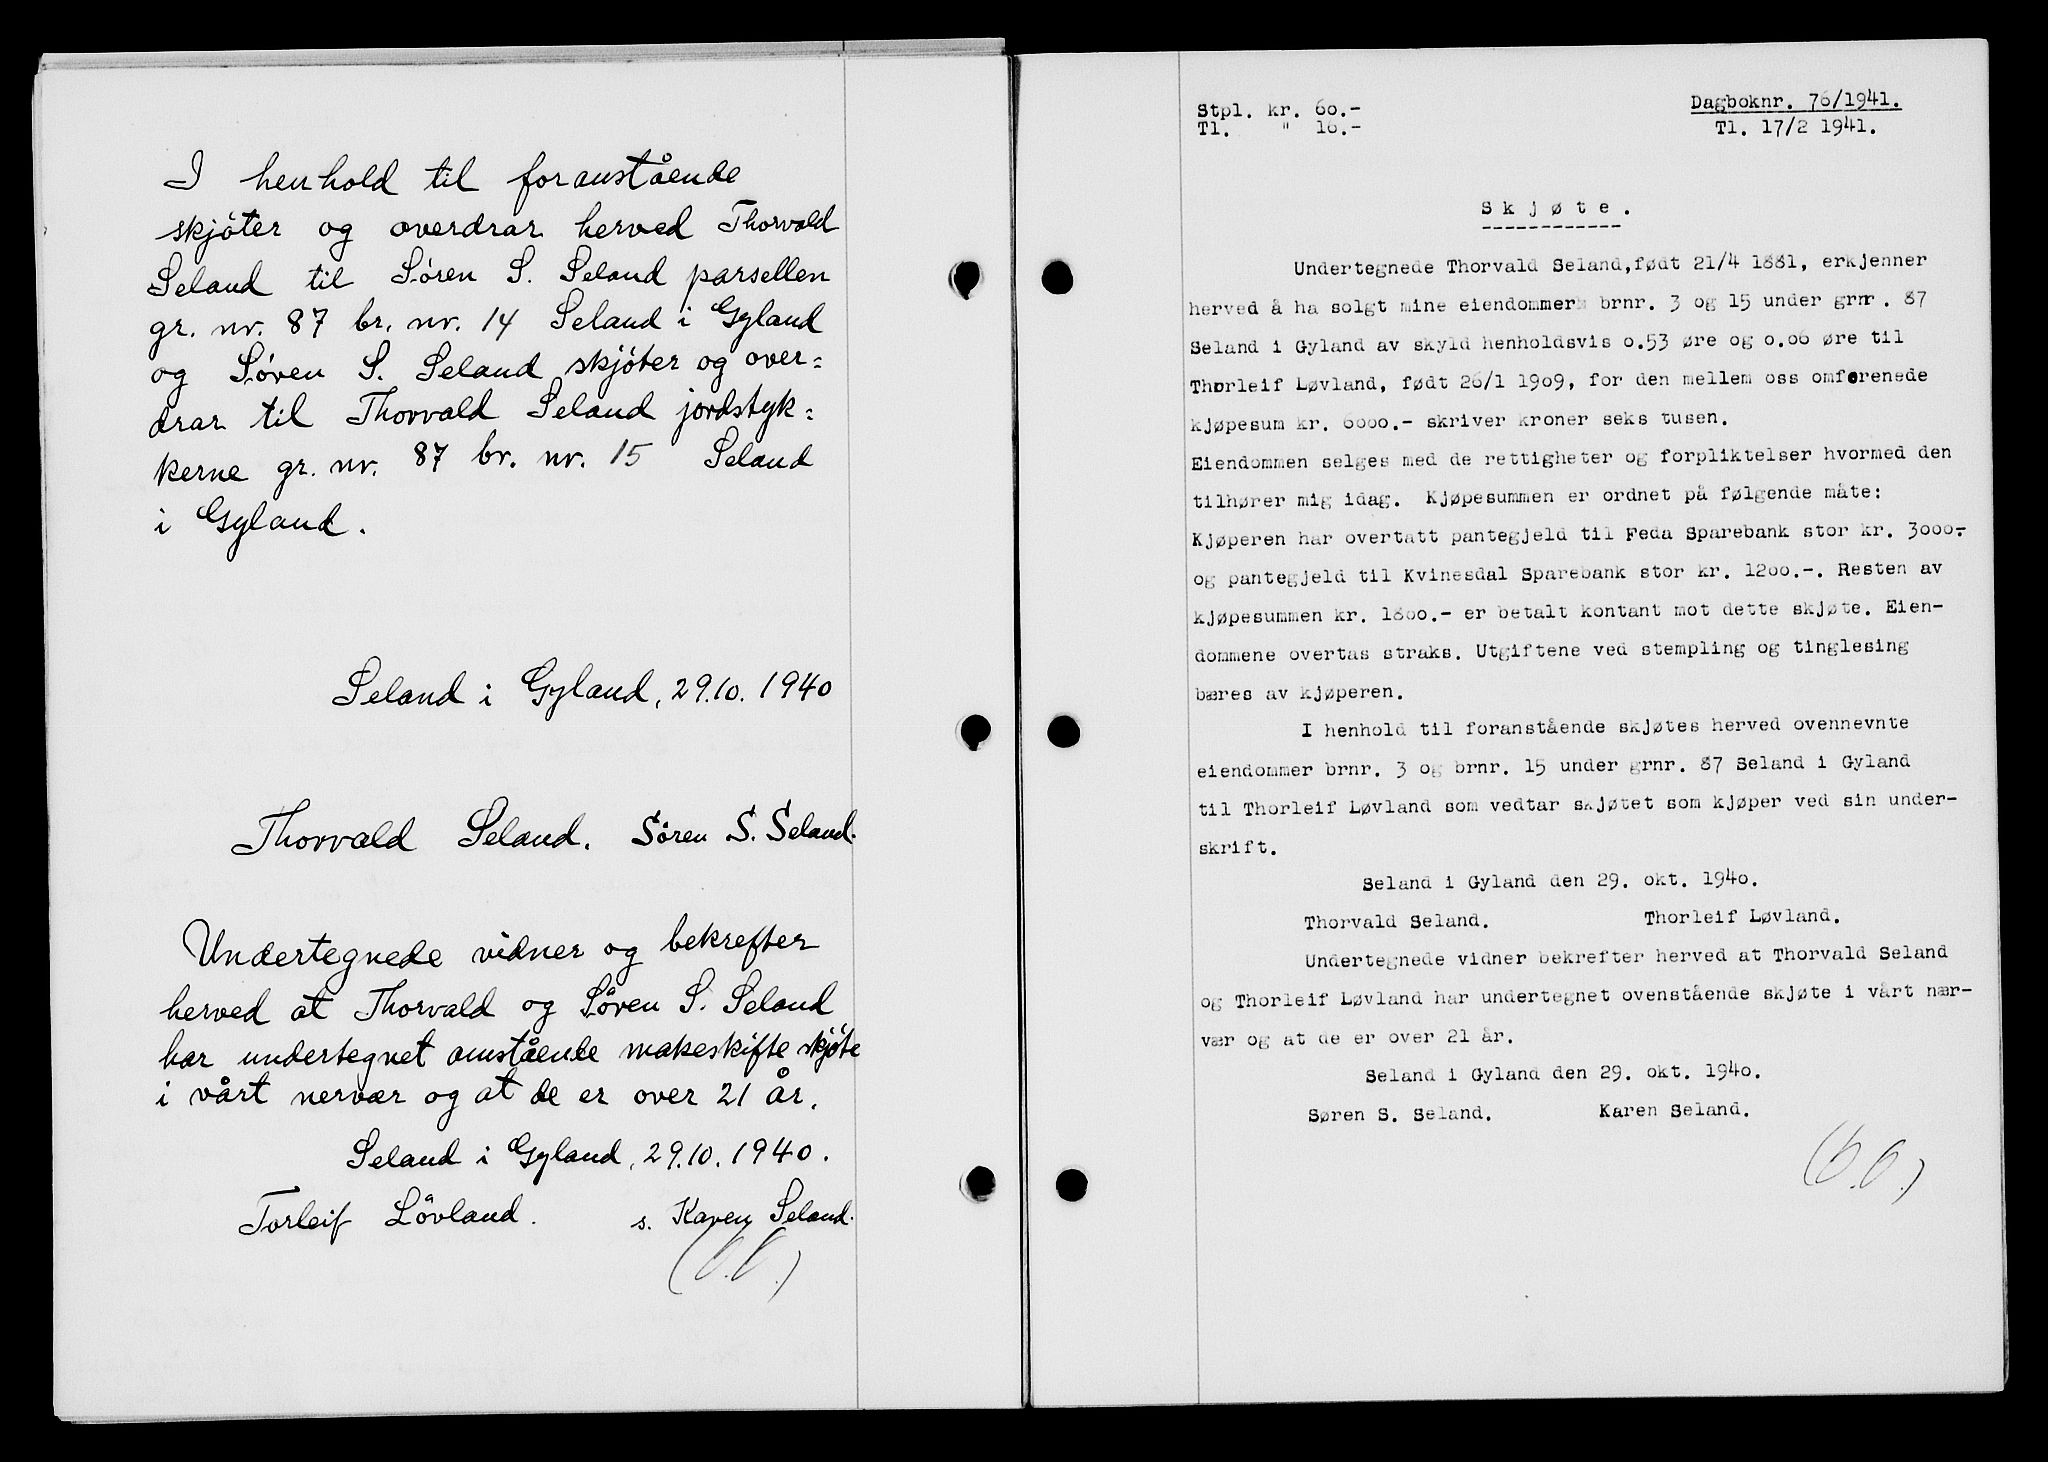 I henhold til foranstående
skjöter og overdrar herved Thorvald
Seland til Sören S. Seland parsellen
gr. nr. 87 br. nr. 14 Seland i Gyland
og Sören S. Seland skjöter og over=
drar til Thorvald Seland jordstyk=
kerne gr. nr. 87 br. nr. 15 Seland
i Gyland.
Seland i Gyland, 29.10.1940
Thorvald Seland. Sören S. Seland.
Undertegnede vidner og bekrefter
herved at Thorvald og Sören S. Seland
har undertegnet omstående makeskifte skjöte
i vårt nervær og at de er over 21 år.
Seland i Gyland, 29.10.1940.
Torleif Lövland. s. Karen Seland.
Stpl. kr. 60.-
Tl. " 16.-
Dagboknr. 76/1941.
Tl. 17/2 1941.
Skjøte.
Undertegnede Thorvald Seland,født 21/4 1881, erkjenner
herved å ha solgt mine eiendommer brnr. 3 og 15 under grnr. 87
Seland i Gyland av skyld henholdsvis 0.53 øre og 0.06 øre til
Thorleif Løvland, født 26/1 1909, for den mellem oss omforenede
kjøpesum kr. 6000.- skriver kroner seks tusen.
Eiendommen selges med de rettigheter og forpliktelser hvormed den
tilhører mig idag. Kjøpesummen er ordnet på følgende måte:
Kjøperen har overtatt pantegjeld til Feda Sparebank stor kr. 3000.-
og pantegjeld til Kvinesdal Sparebank stor kr. 1200.-. Resten av
kjøpesummen kr. 1800.- er betalt kontant mot dette skjøte. Eien-
dommene overtas straks. Utgiftene ved stempling og tinglesing
bæres av kjøperen.
I henhold til foranstående skjøtes herved ovennevnte
eiendommer brnr. 3 og brnr. 15 under grnr. 87 Seland i Gyland
til Thorleif Løvland som vedtar skjøtet som kjøper ved sin under-
skrift.
Seland i Gyland den 29. okt. 1940.
Thorvald Seland. Thorleif Løvland.
Undertegnede vidner bekrefter herved at Thorvald Seland
og Thorleif Løvland har undertegnet ovenstående skjøte i vårt nær-
vær og at de er over 21 år.
Seland i Gyland den 29. okt. 1940.
Søren S. Seland. Karen Seland.